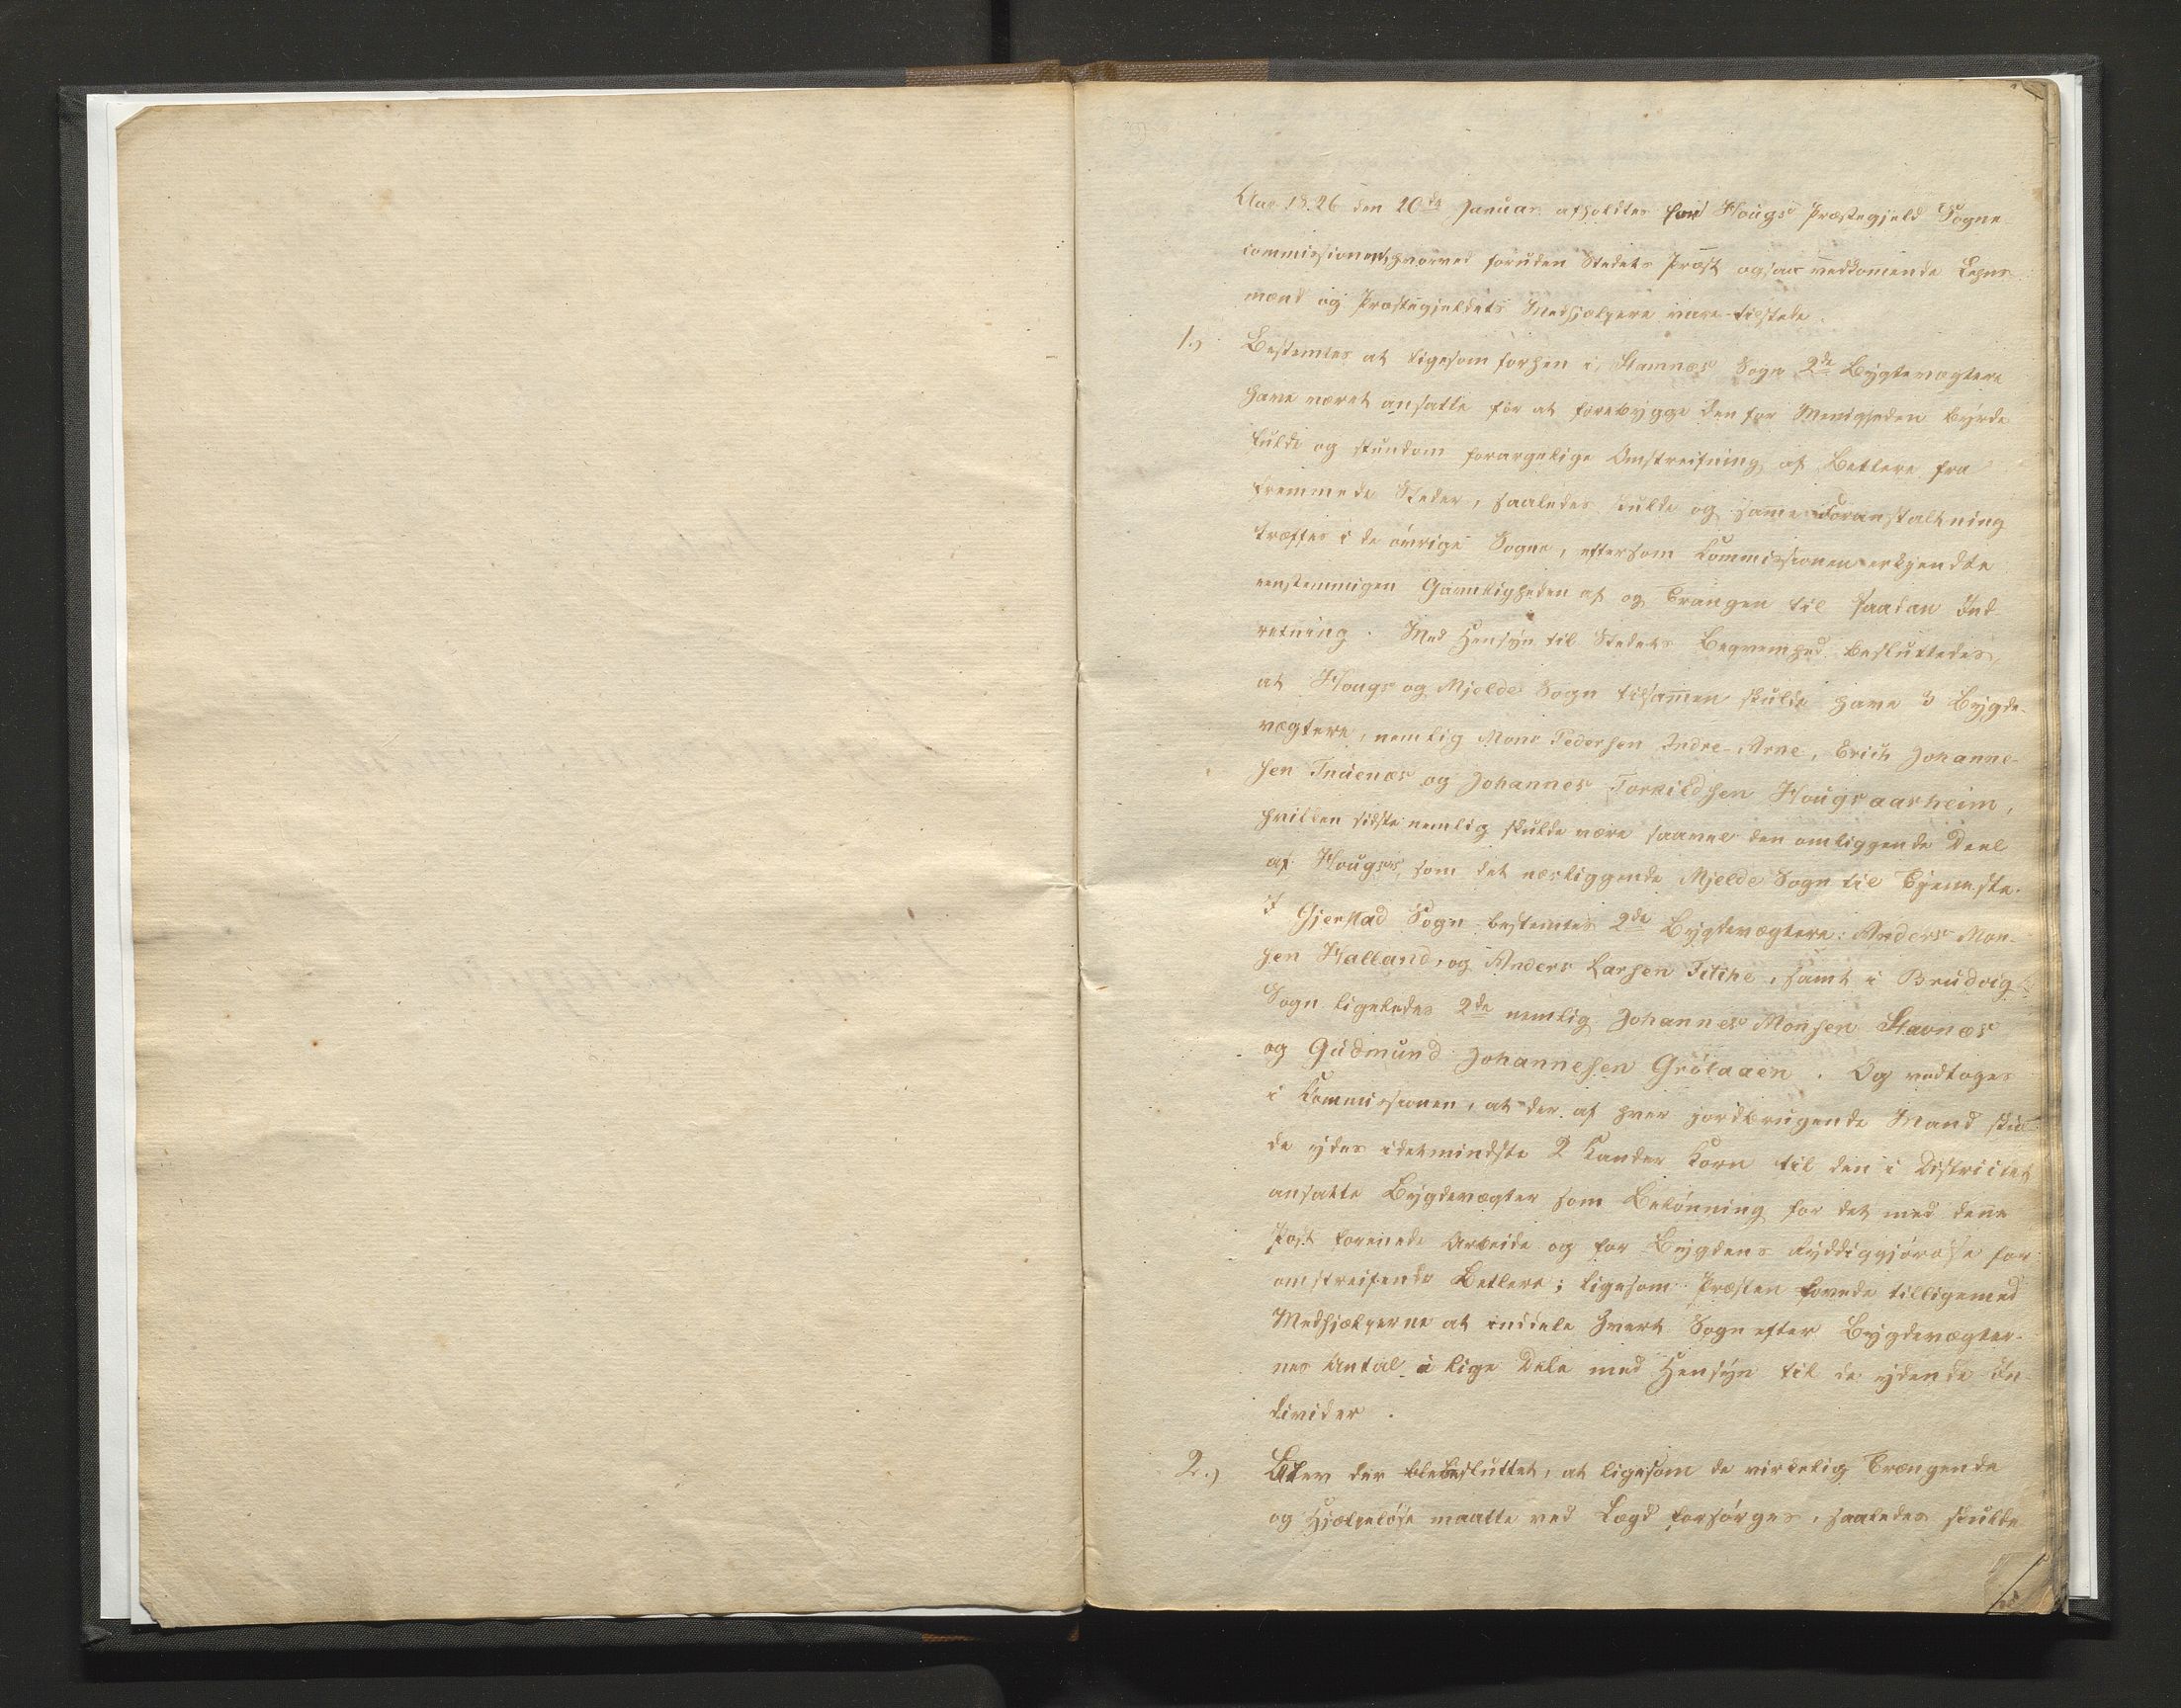 Aar 1826 den 20de Januar afholdtes for Hougs Præstegjeld Sogne
commissionen, hvorved foruden Stedets Præst ogsaa vedkomende Lehns
mænd og Præstegjeldets Medhjælpere vare tilstede.
1.) Bestemtes at ligesom forhen i Stamnæs Sogn 2de Bygdevægtere
have været ansatte for at forebygge den for Menigheden byrde
fulde og stundom forargelige Omstreifning af Betlere fra
fremmede Steder, saaledes skulde og samme Foranstaltning
træffes i de övrige Sogne, eftersom Commissionen erkjendte
eenstemmigen Gavnligheden af og Trangen til saadan Ind
retning. Med Hensyn til Stedets Beqvemhed besluttedes,
at Hougs og Mjelde Sogn tilsamen skulde have 3 Bygde-
vægtere, nemlig Mons Pedersen Indre-Arne, Erich Johanne-
sen Tnuenæs og Johannes Torkildsen Hougsaarheim,
hvilken sidste nemlig skulde være saavel den omliggende Deel
af Hougs, som det nærliggende Mjelde Sogn til Tjeneste.
I Gjerstad Sogn bestemtes 2de Bygdevægtere: Anders Mon-
sen Halland, og Anders Larsen Titihe, samt i Brudvig
Sogn ligeledes 2de nemlig Johannes Monsen Stavnæs
og Gudmund Johannesen Grölaaen. Og vedtoges
i Commissionen, at der af hver jordbrugende Mand skul
de ydes idetmindste 2 Kander Korn til den i Districtet
ansatte Bygdevægter som Belönning for det med denne
Post forenede Arbeide og for Bygdens Ryddiggjörelse for
omstreifende Betlere; ligesom Præsten lovede tilligemed
Medhjælperne at inddele hvert Sogn efter Bygdevægter-
nes Antal i lige Dele med Hensyn til de ydende In
divider.
2.) Blev der besluttet, at ligesom de virkelig Trængende
og Hjælpelöse maatte ved Lægd forsörges, saaledes skulde